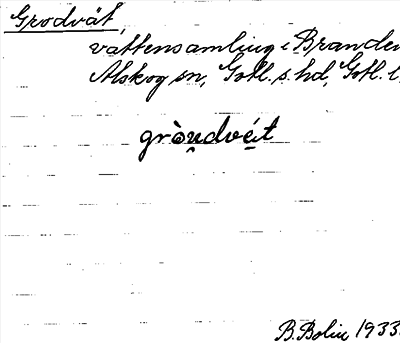 Grodvät,
vattensamling i Brande
Alskog sn, Gotl. s. hd, Gotl. l.
gròu̯dvéi̯t
B. Bolin 1933.